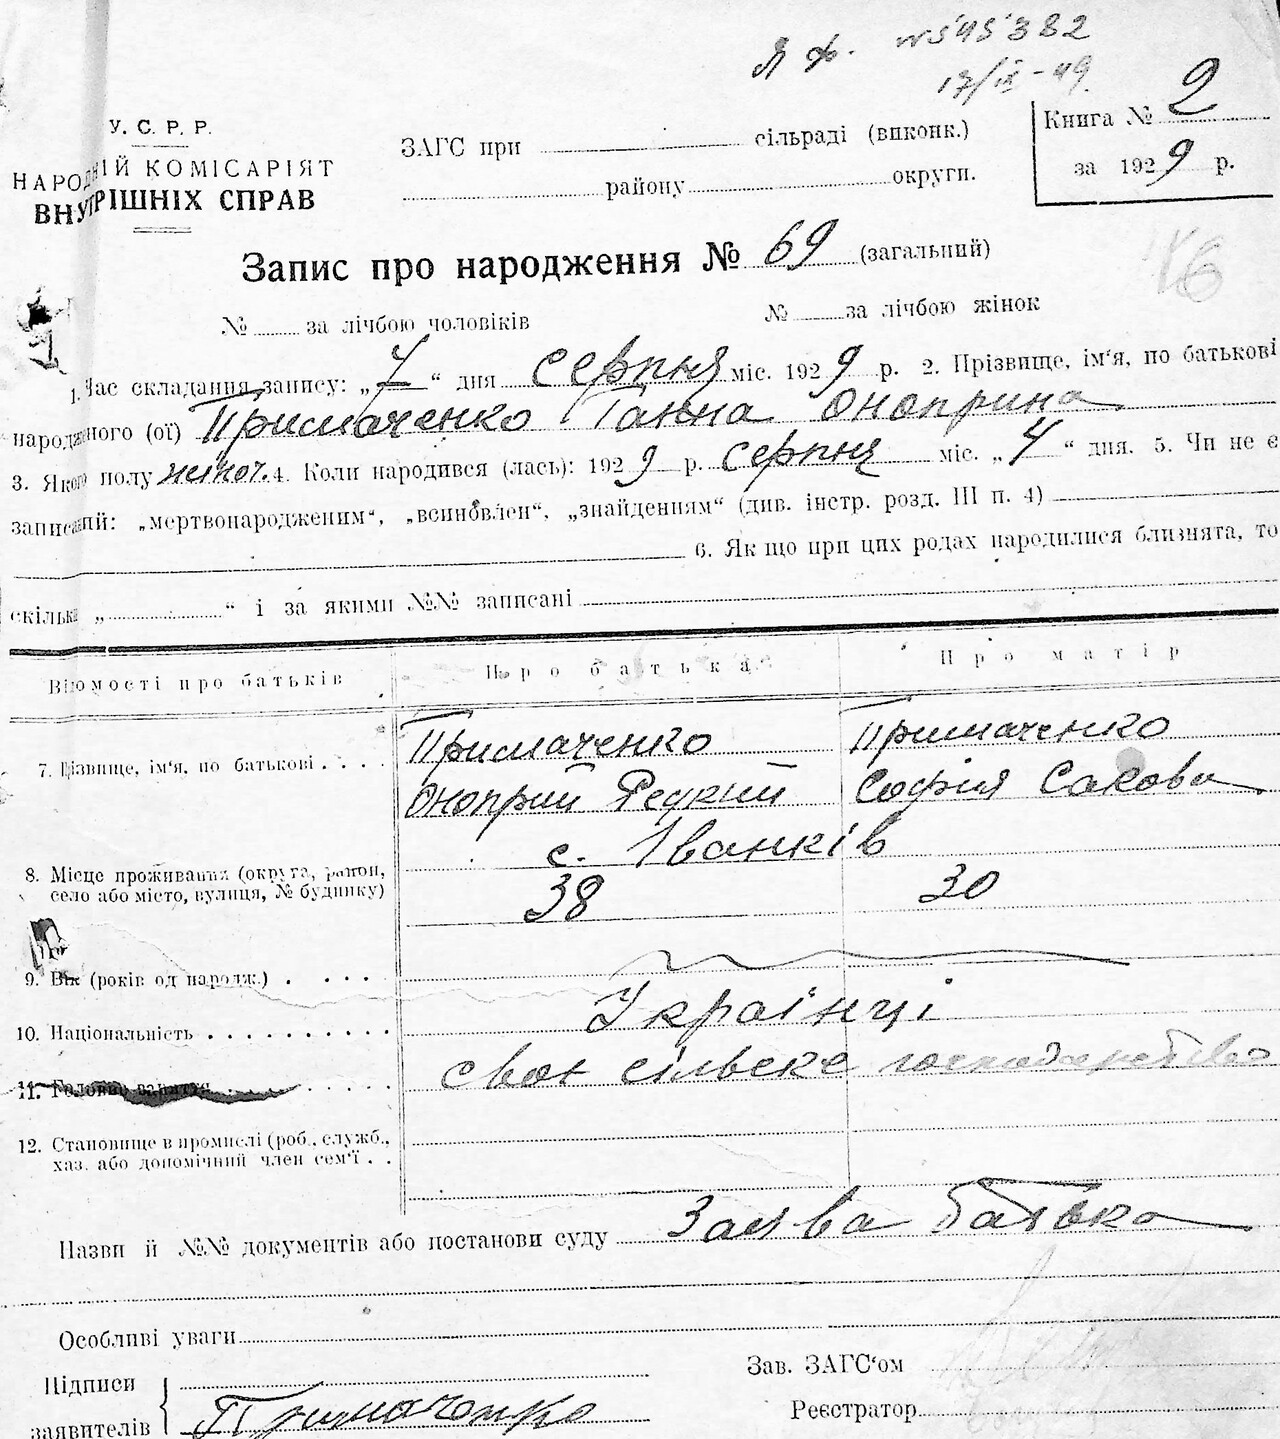 № 545382
17/IX-49.
У. С. Р. Р.
НАРОДНІЙ КОМІСАРІЯТ
ВНУТРІШНІХ СПРАВ
ЗАГС при сільраді (виконк.)
району округи.
Книга № 2
за 1929 р.
Запис про народження № 69 (загальний)
№ за лічбою чоловіків № за лічбою жінок
1. Час складання запису: „7“ дня серпня міс. 1929 р. 2. Прізвище, ім‘я, по батькові
народженого (ої) Примаченко Ганна Оноприна
3. Якого полу 4. Коли народився (лась): 1929 р. серпня міс. „4“ дня. 5. Чи не є
записаний: „мертвонародженим“, „всиновлен“, „знайденням“ (див. інстр. розд. III п. 4)
6. Якщо при цих родах народилися близнята, то
скільки „ “ і за якими №№ записані
Відомості про батьків Про батька Про матір
7. Прізвище, ім‘я, по батькові . . . . Примаченко Примаченко
Оноприй София
8. Місце проживання (округа, район, с. Іванків
село або місто, вулиця, № будинку) 38 30
9. Вік (років од народж.) . . . .
10. Національність . . . . . . . . . . Українці
11. Головне заняття . . . . . . своє сільске господарство
12. Становище в промислі (роб., служб.,
хаз. або допомічний член сем‘ї . .
Назви й №№ документів або постанови суду Заява батька
Особливі уваги
Підписи
заявителів Примаченко
Зав. ЗАГС‘ом
Реєстратор